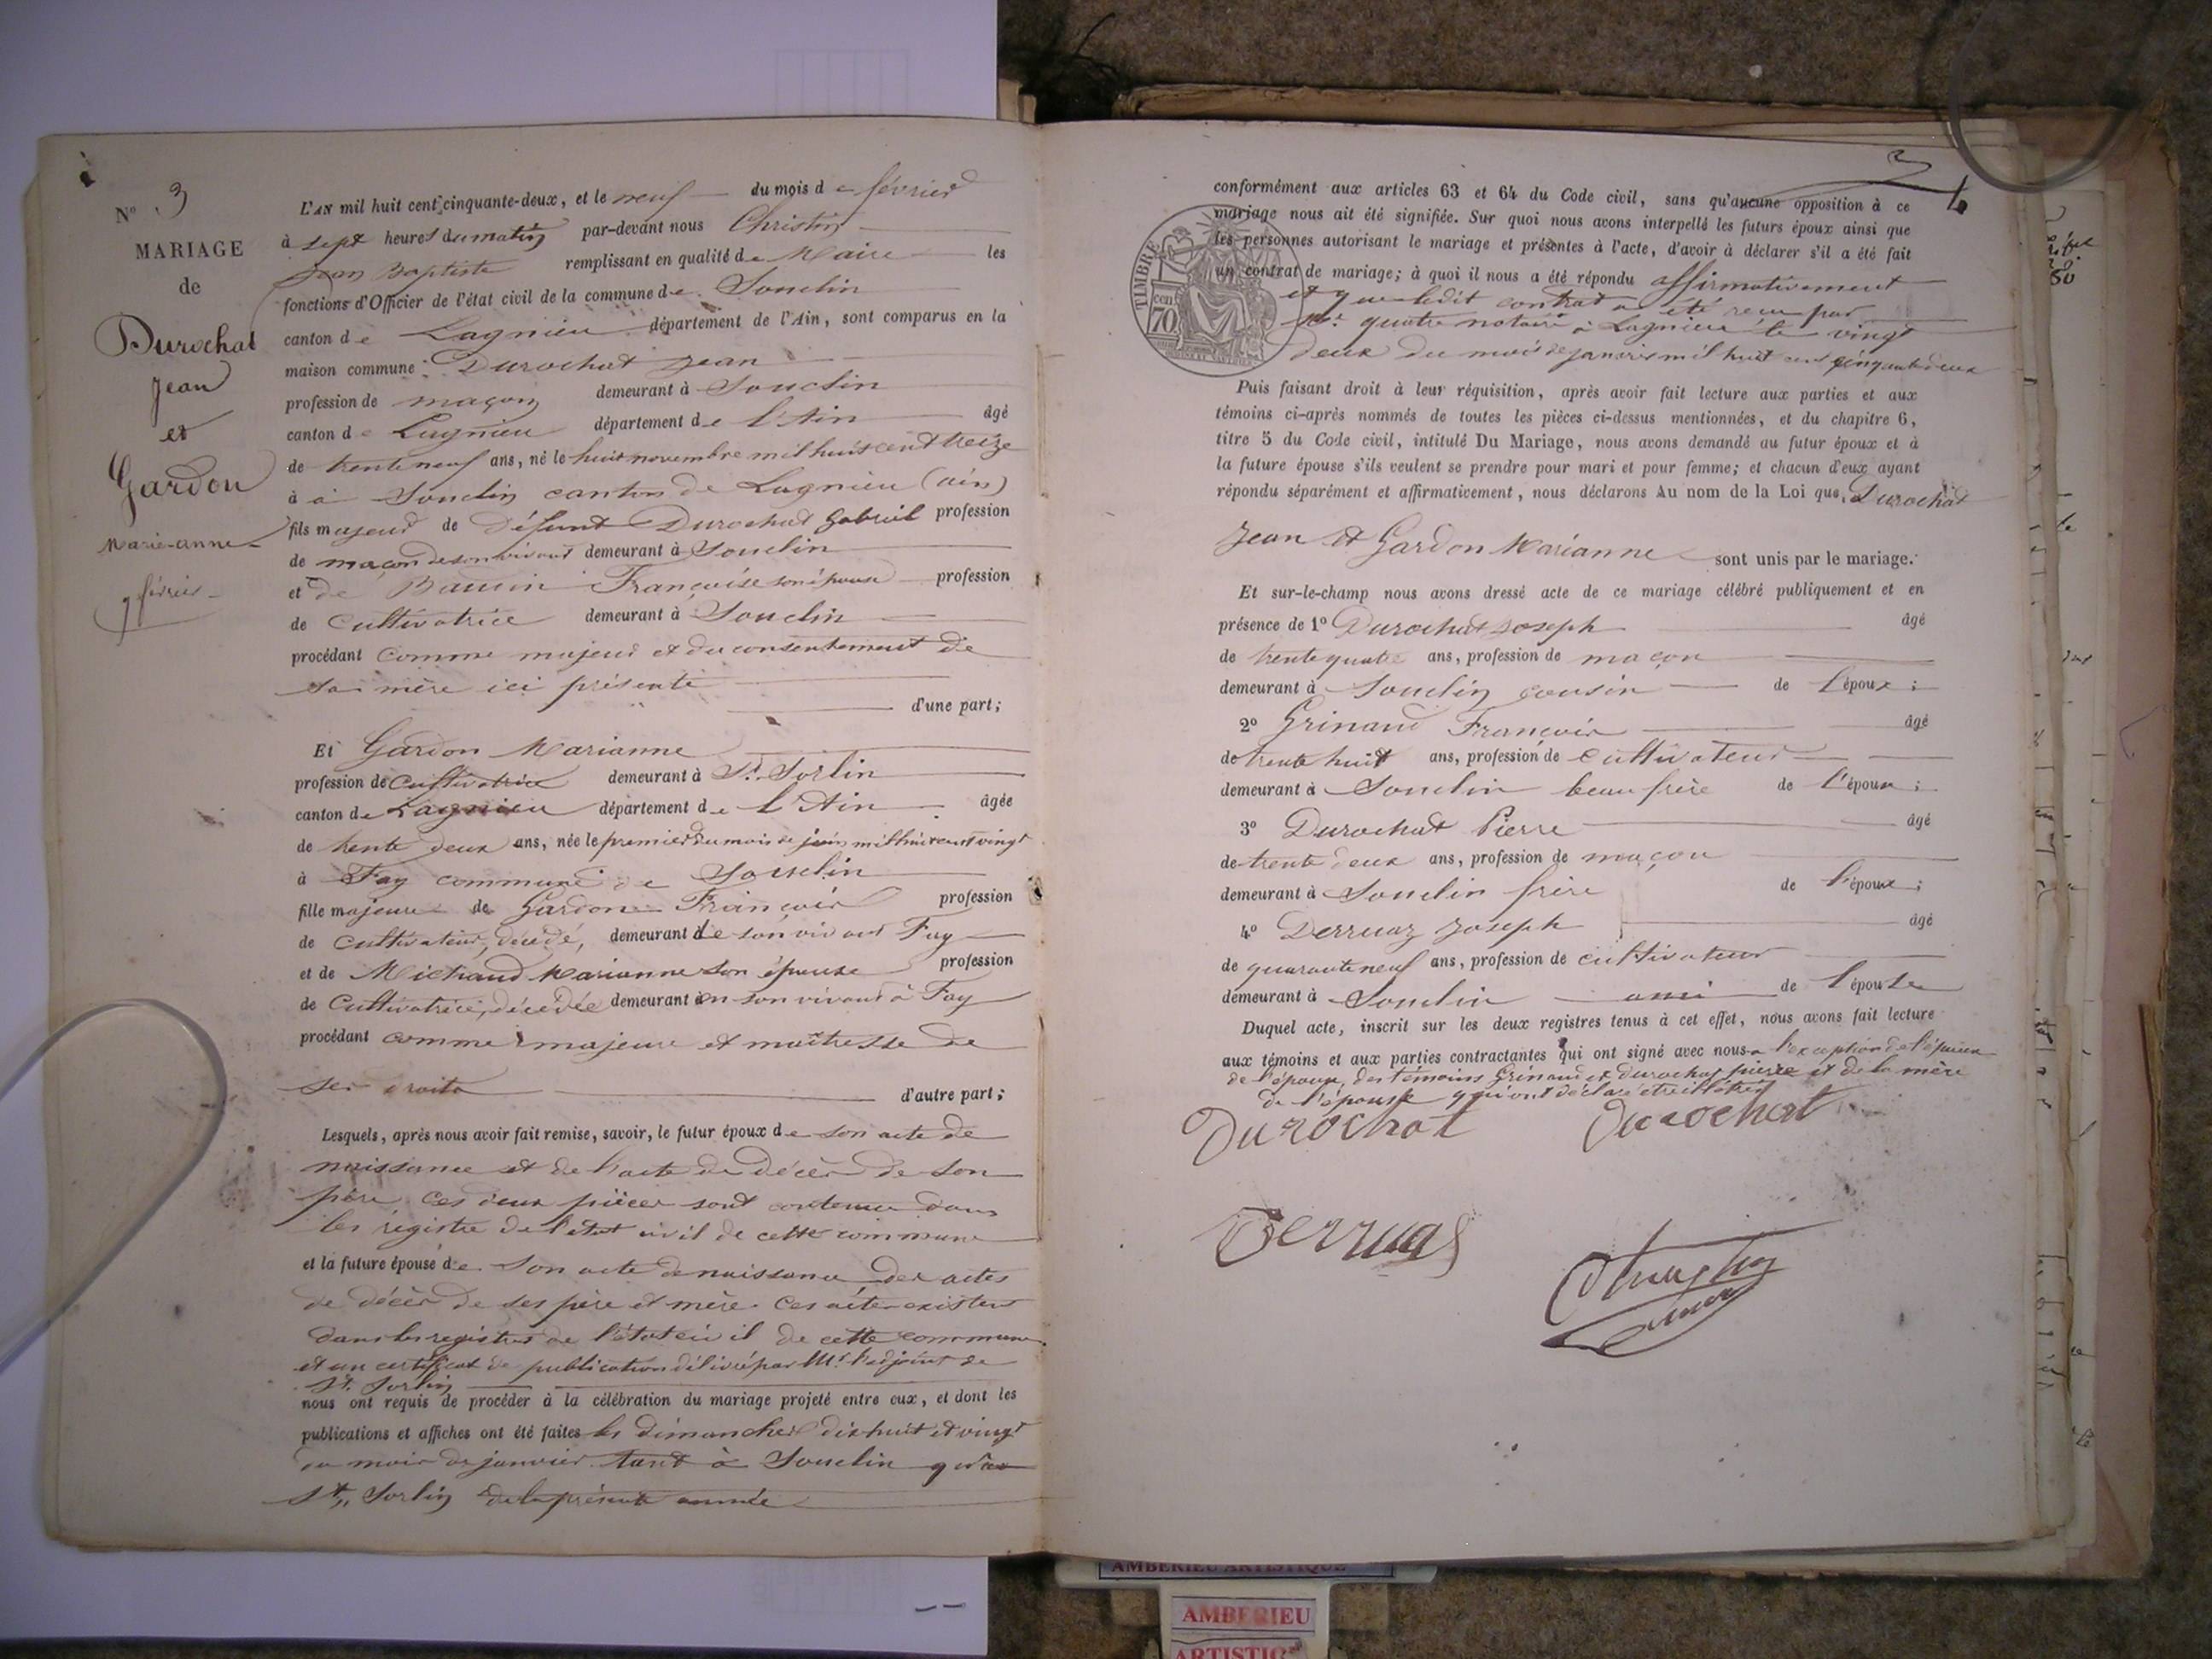 N° 3
MARIAGE
de
Durochat
Jean
et
Gardon
Marie-anne
9 février
L'AN mil huit cent cinquante-deux, et le neuf du mois de février
à sept heures du matin par-devant nous Christin
Jean Baptiste remplissant en qualité de Maire les
fonctions d'Officier de l'état civil de la commune de Souclin
canton de Lagnieu département de l'Ain, sont comparus en la
maison commune Durochat Jean
profession de maçon demeurant à Souclin
canton de Lagnieu département de l'Ain âgé
de trente neuf ans, né le huit novembre mil huit cent treize
à à Souclin canton de Lagnieu (ain)
fils majeur de défunt Durochat Gabriel profession
de maçon de son vivant demeurant à Souclin
et de Françoise son épouse profession
de Cultivatrice demeurant à Souclin
procédant comme majeur et du consentement de
sa mère ici présente
d'une part;
Et Gardon Marianne
profession de Cultivatrice demeurant à St. Sorlin
canton de Lagnieu département de l'Ain âgée
de trente deux ans, née le premier du mois de juin mil huit cent vingt
à Fay commune de Souclin
fille majeure de Gardon François profession
de Cultivateur, décédé, demeurant de son vivant Fay
et de Michaud Marianne son épouse profession
de Cultivatrice, décédée demeurant en son vivant à Fay
procédant comme majeure et maîtresse de
ses droits
d'autre part;
Lesquels, après nous avoir fait remise, savoir, le futur époux de son acte de
naissance et de l'acte de décès de son
père. Ces deux pièces sont contenue dans
les registre de l'état civil de cette commune
et la future épouse de son acte de naissance des actes
de décès de ses père et mère. Ces actes existent
dans les registres de l'état civil de cette commune
et un certificat de publication délivré par Mr. l'adjoint de
St. Sorlin
nous ont requis de procéder à la célébration du mariage projeté entre eux, et dont les
publications et affiches ont été faites les dimanches dix huit et vingt
du mois de janvier tant à Souclin qu'à
St. Sorlin de la présente année
conformément aux articles 63 et 64 du Code civil, sans qu'aucune opposition à ce
mariage nous ait été signifiée. Sur quoi nous avons interpellé les futurs époux ainsi que
les personnes autorisant le mariage et présentes à l'acte, d'avoir à déclarer s'il a été fait
un contrat de mariage; à quoi il nous a été répondu affirmativement
et que ledit contrat a été reçu par
Me. quatre notaire à Lagnieu le vingt
deux du mois de janvier mil huit cent cinquante deux
TIMBRE
cen
70
Puis faisant droit à leur réquisition, après avoir fait lecture aux parties et aux
témoins ci-après nommés de toutes les pièces ci-dessus mentionnées, et du chapitre 6,
titre 5 du Code civil, intitulé Du Mariage, nous avons demandé au futur époux et à
la future épouse s'ils veulent se prendre pour mari et pour femme; et chacun d'eux ayant
répondu séparément et affirmativement, nous déclarons Au nom de la Loi que Durochat
Jean et Gardon Marianne sont unis par le mariage.
Et sur-le-champ nous avons dressé acte de ce mariage célébré publiquement et en
présence de 1° Durochat Joseph âgé
de trente quatre ans, profession de maçon
demeurant à Souclin cousin de l'époux;
2° Grinand François âgé
de trente huit ans, profession de Cultivateur
demeurant à Souclin beau frère de l'époux;
3° Durochat Pierre âgé
de trente deux ans, profession de maçon
demeurant à Souclin frère de l'époux;
4° Derruaz Joseph âgé
de quarante neuf ans, profession de cultivateur
demeurant à Souclin ami de l'épouse
Duquel acte, inscrit sur les deux registres tenus à cet effet, nous avons fait lecture
aux témoins et aux parties contractantes qui ont signé avec nous a l'exception de l'épouse
de l'époux, des témoins Grinand et Durochat pierre et de la mère
de l'épouse qui ont déclaré être illétrés
Durochat Durochat
Derruaz
Christin
maire
AMBERIEU ARTISTIQUE
AMBERIEU
ARTISTIQUE